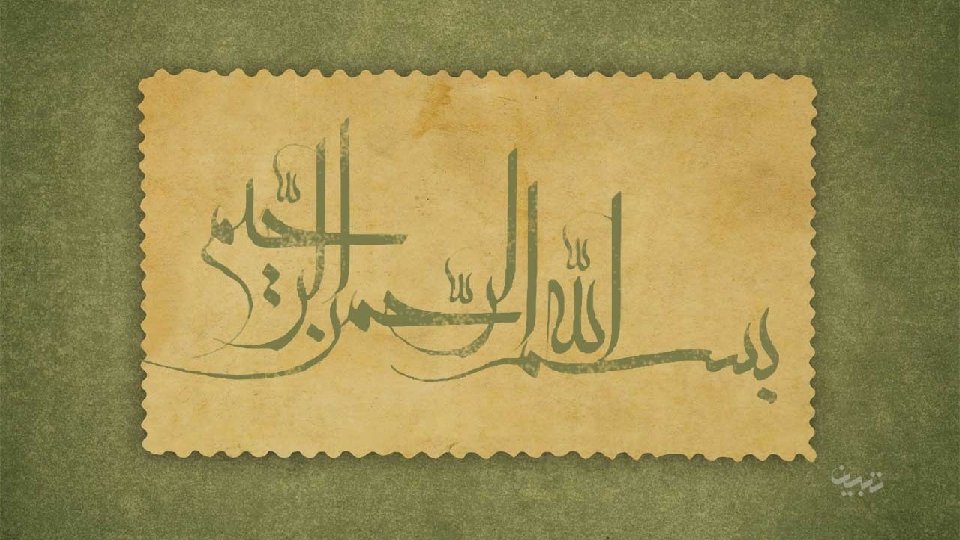 بسم الله الرحمن الرحیم
تبیین